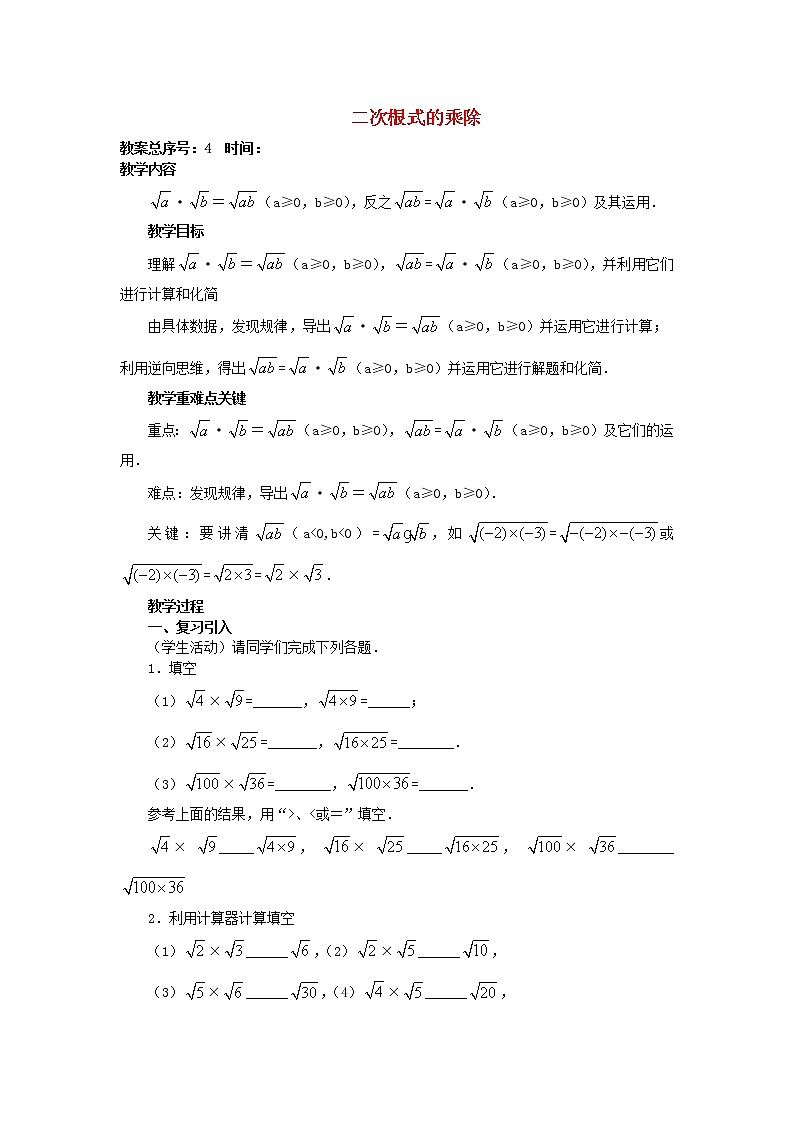 二次根式的乘除
教案总序号:4 时间:
教学内容
√a·√b=√ab(a≥0,b≥0),反之√ab=√a·√b(a≥0,b≥0)及其运用.
教学目标
理解√a·√b=√ab(a≥0,b≥0),√ab=√a·√b(a≥0,b≥0),并利用它们
进行计算和化简
由具体数据,发现规律,导出√a·√b=√ab(a≥0,b≥0)并运用它进行计算;
利用逆向思维,得出√ab=√a·√b(a≥0,b≥0)并运用它进行解题和化简.
教学重难点关键
重点:√a·√b=√ab(a≥0,b≥0),√ab=√a·√b(a≥0,b≥0)及它们的运
用.
难点:发现规律,导出√a·√b=√ab(a≥0,b≥0).
关键:要讲清√ab(a<0,b<0)=√a g√b,如√(−2)×(−3)=√−(−2)×−(−3)或
√(−2)×(−3)=√2×3=√2×√3.
教学过程
一、复习引入
(学生活动)请同学们完成下列各题.
1.填空
(1)√4×√9=_______,√4×9=______;
(2)√16×√25=_______,√16×25=________.
(3)√100×√36=________,√100×36=_______.
参考上面的结果,用“>、<或=”填空.
√4×√9_____√4×9,√16×√25_____√16×25,√100×√36________
√100×36
2.利用计算器计算填空
(1)√2×√3______√6,(2)√2×√5______√10,
(3)√5×√6______√30,(4)√4×√5______√20,